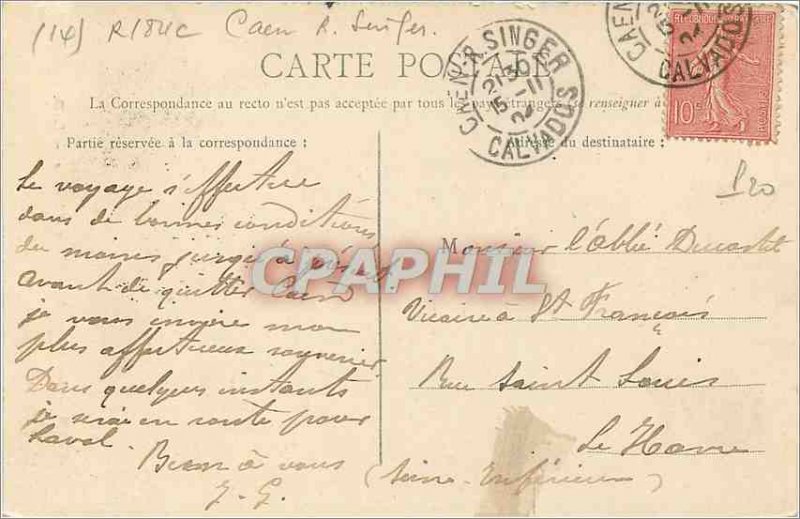 (14) R184c Caen R. Singer
CARTE POSTALE
La Correspondance au recto n'est pas acceptée par tous les pays étrangers (se renseigner à
Partie réservée à la correspondance :
Adresse du destinataire :
CAEN - R. SINGER
21 30
15 - 11
04
CALVADOS
CAEN
CALVADOS
REPUBLIQUE FRANÇAISE
10c
POSTES
1,20
Le voyage s'effectue
dans de bonnes conditions
du moins jusqu'à présent
avant de quitter Caen
je vous envoie mon
plus affectueux souvenir
Dans quelques instants
je serai en route pour
Laval.
Bien à vous
J. G.
Monsieur l'abbé
Vicaire à St François
Rue Saint Louis
Le Havre
(Seine Inférieure)
CPAPHIL